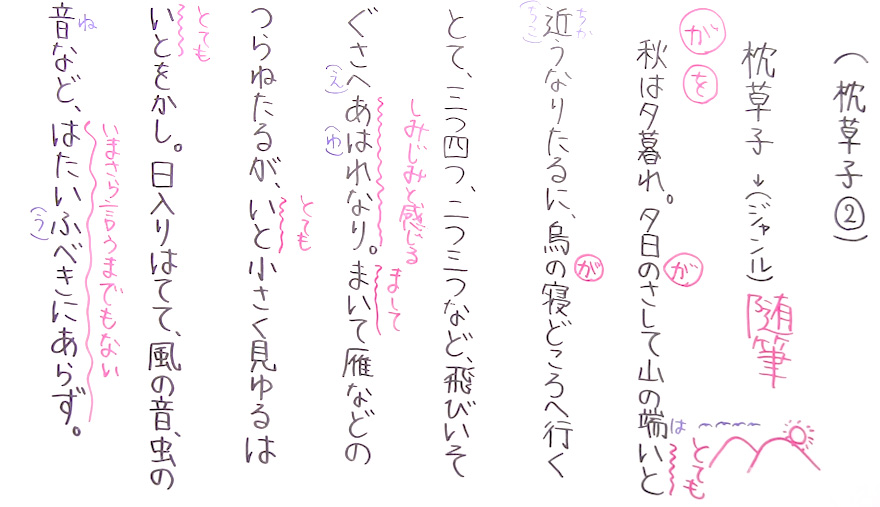 (枕草子②)
枕草子→(ジャンル)随筆
が
を
が
は
とても
秋は夕暮れ。夕日のさして山の端いと
ちか
が
近うなりたるに、烏の寝どころへ行く
(ちこ)
とて、三つ四つ、二つ三つなど、飛びいそ
しみじみと感じる
まして
ぐさへあはれなり。まいて雁などの
(え)
(ゆ)
とても
つらねたるが、いと小さく見ゆるは
とても
いとをかし。日入りはてて、風の音、虫の
ね
いまさら言うまでもない
音など、はたいふべきにあらず。
(う)